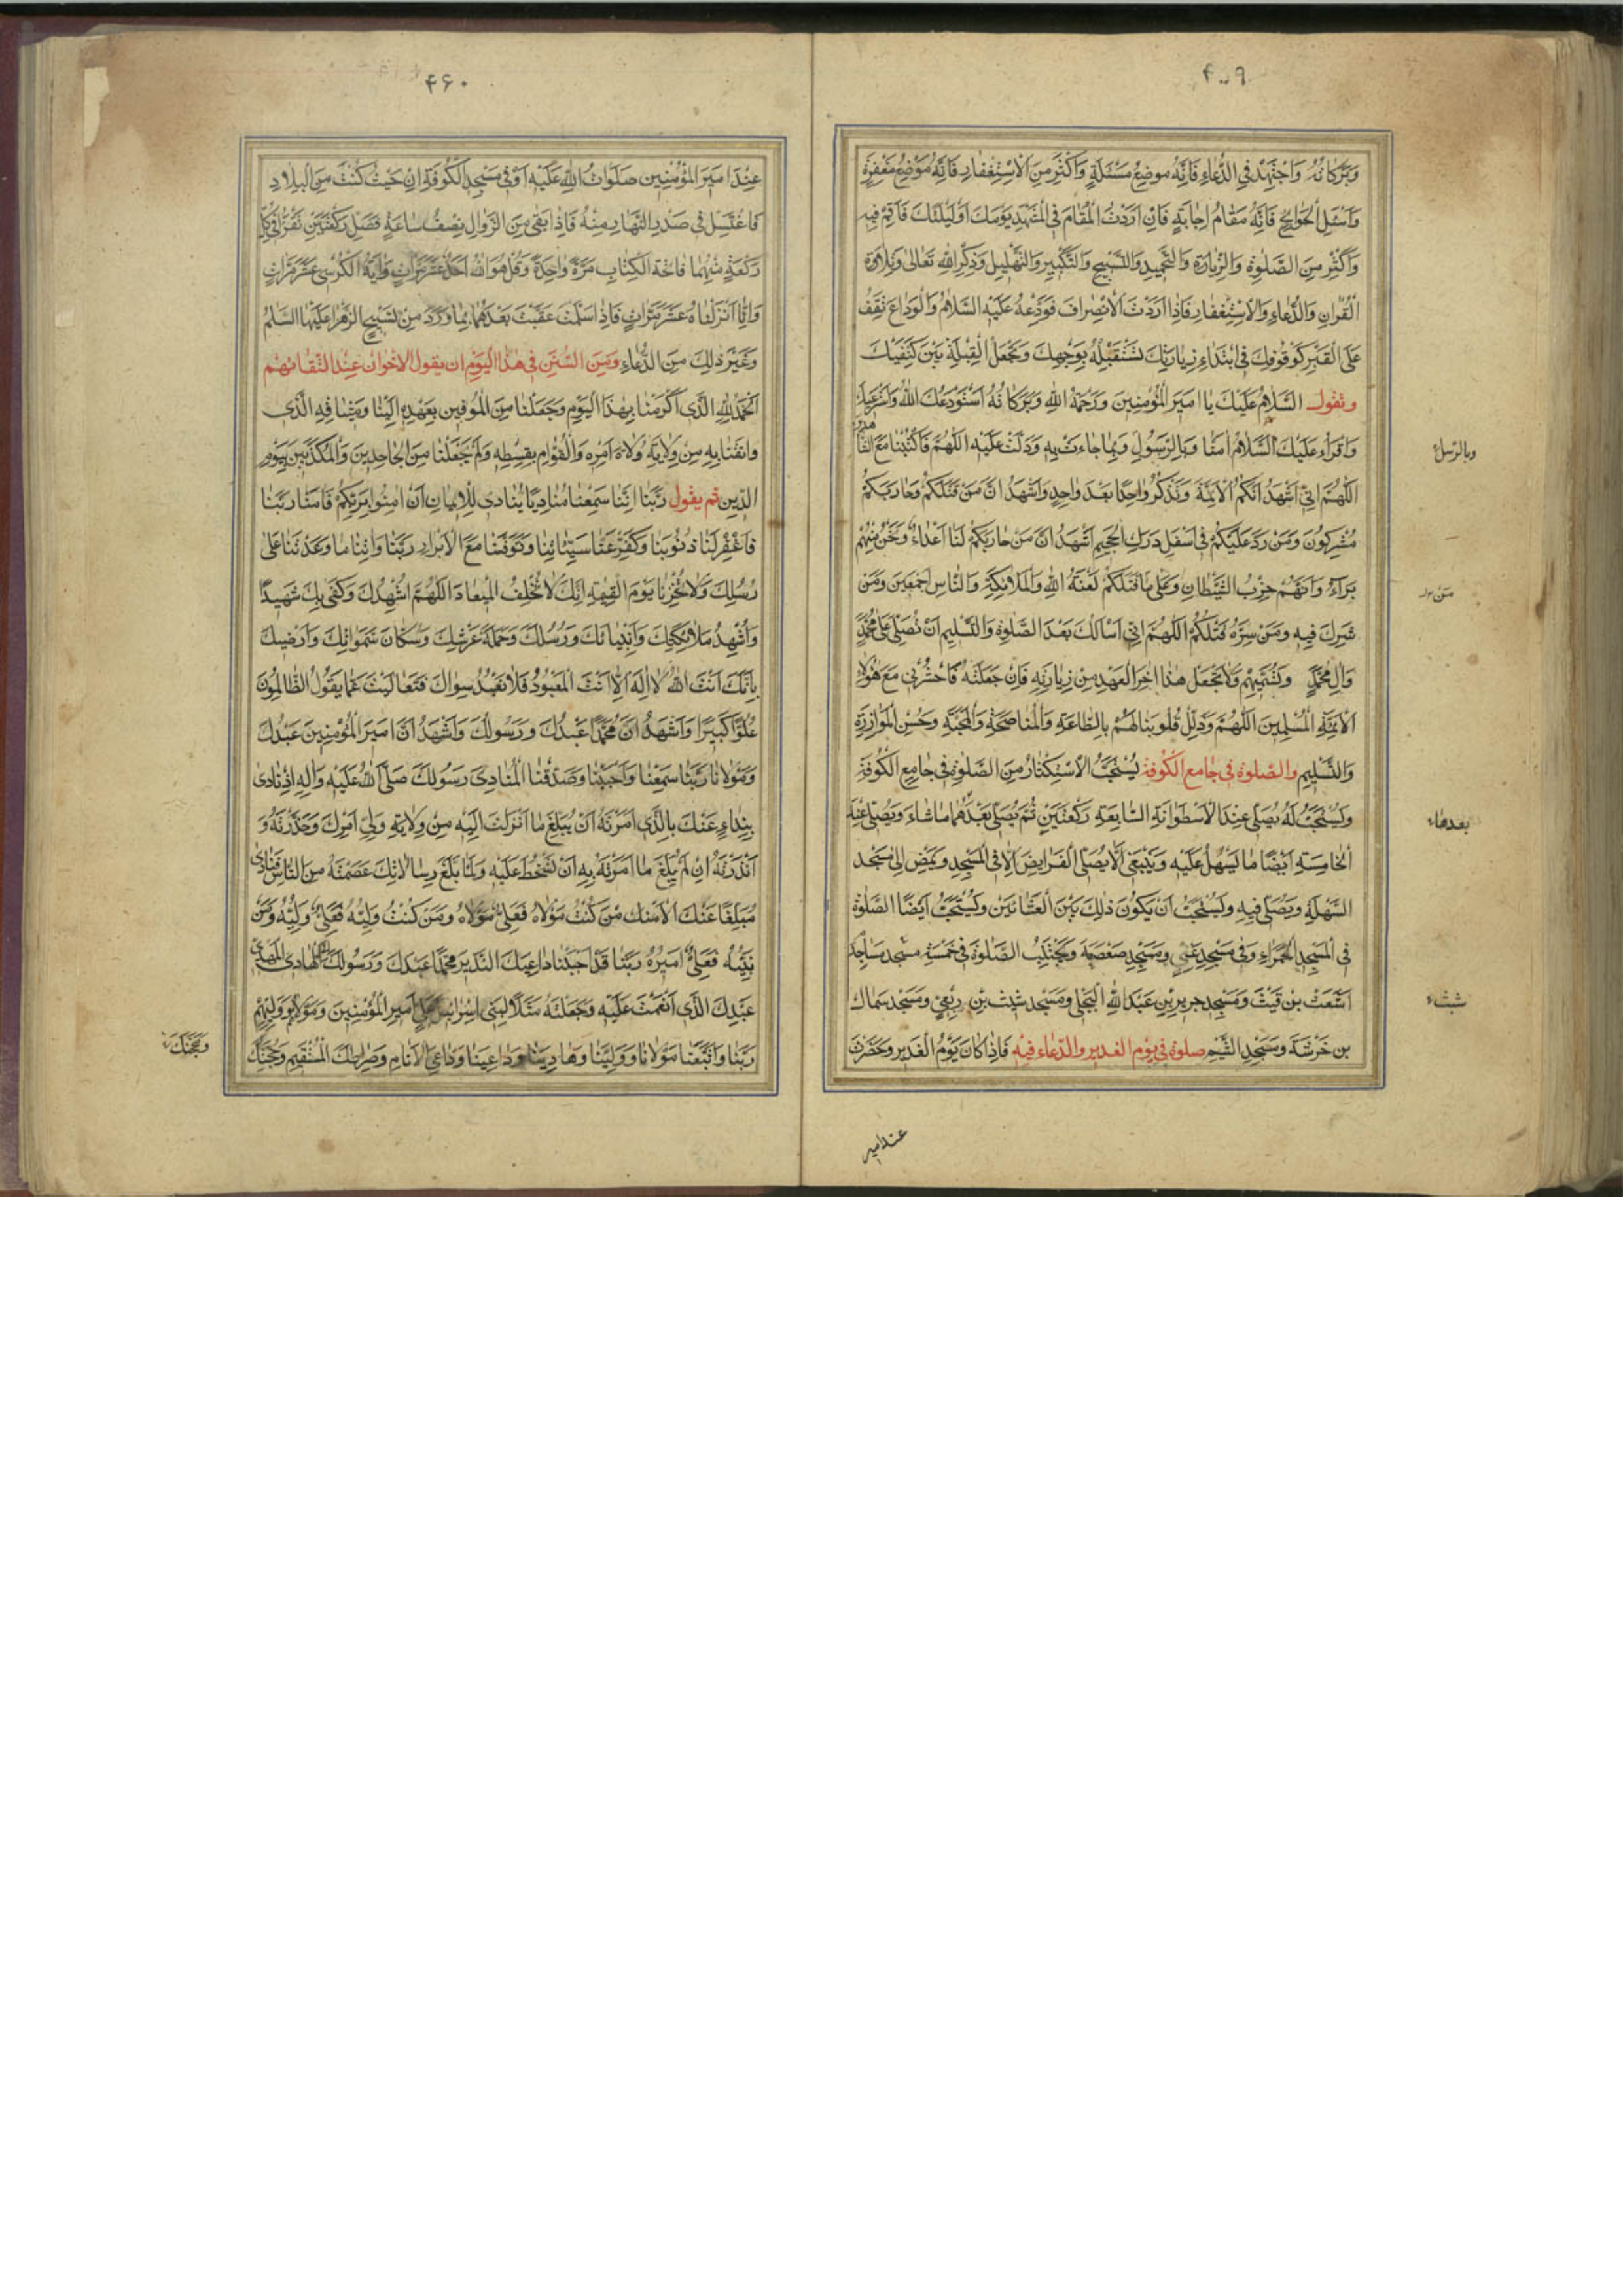 ۴۰۹
وَبَرَكاتُهُ وَاجْتَهِدْ فِي الدُّعاءِ فَاِنَّهُ مَوضِعُ مَسْئَلَةٍ وَاَكْثِرْ مِنَ الاِسْتِغْفارِ فَاِنَّهُ مَوْضِعُ مَغْفِرَةٍ
وَاسْئَلِ الْحَوائِجَ فَاِنَّهُ مَقامُ اِجابَةٍ فَاِنْ اَرَدْتَ الْمُقامَ فِي الْمَشْهَدِ يَوْمَكَ اَوْ لَيْلَتَكَ فَاَقِمْ فيهِ
وَاَكْثِرْ مِنَ الصَّلٰوةِ وَالزِّيارَةِ وَالتَّحْميدِ وَالتَّسْبيحِ وَالتَّكْبيرِ وَالتَّهْليلِ وَذِكْرِ اللهِ تَعالىٰ وَتِلاوَةِ
الْقُرْانِ وَالدُّعاءِ وَالاِسْتِغْفارِ فَاِذا اَرَدْتَ الاِنْصِرافَ فَوَدِّعْهُ عَلَيْهِ السَّلامُ وَالْوَداعُ تَقِفُ
عَلَى الْقَبْرِ كَوُقُوفِكَ فِي ابْتِداءِ زِيارَتِكَ تَسْتَقْبِلُهُ بِوَجْهِكَ وَتَجْعَلُ الْقِبْلَةَ بَيْنَ كَتِفَيْكَ
وتقول السَّلامُ عَلَيْكَ يا اَميرَ الْمُؤْمِنينَ وَرَحْمَةُ اللهِ وَبَرَكاتُهُ اَسْتَوْدِعُكَ اللهَ وَاَسْتَرْعيكَ
وَاَقْرَأُ عَلَيْكَ السَّلامَ اٰمَنّا وَبِالرَّسُولِ وَبِما جاءَتْ بِهِ وَدَلَّتْ عَلَيْهِ اللّٰهُمَّ فَاكْتُبْنا مَعَ الشّاهدين
اللّٰهُمَّ اِنّي اَشْهَدُ اَنَّكُمُ الاَئِمَّةُ وَتَذْكُرُ واحِدًا بَعْدَ واحِدٍ وَاَشْهَدُ اَنَّ مَنْ قَتَلَكُمْ وَحارَبَكُمْ
مُشْرِكُونَ وَمَنْ رَدَّ عَلَيْكُمْ في اَسْفَلِ دَرَكِ الْجَحيمِ اَشْهَدُ اَنَّ مَنْ حارَبَكُمْ لَنا اَعْداءٌ وَنَحْنُ مِنْهُمْ
بَرَاءُ وَاَنَّهُمْ حِزْبُ الشَّيْطانِ وَعَلىٰ مَنْ قَتَلَكُمْ لَعْنَةُ اللهِ وَالْمَلائِكَةِ وَالنّاسِ اَجْمَعينَ وَمَنْ
شَرِكَ فيهِ وَمَنْ سَرَّهُ قَتْلُكُمْ اللّٰهُمَّ اِنّي اَسْاَلُكَ بَعْدَ الصَّلٰوةِ وَالتَّسْليمِ اَنْ تُصَلِّيَ عَلىٰ مُحَمَّدٍ
وَاٰلِ مُحَمَّدٍ وَتُسَمّيهِمْ وَلا تَجْعَلْ هٰذا اٰخِرَ الْعَهْدِ مِنْ زِيارَتِهِ فَاِنْ جَعَلْتَهُ فَاحْشُرْني مَعَ هٰؤُلاءِ
الاَئِمَّةِ الْمُسَلِّمينَ اللّٰهُمَّ وَذَلِّلْ قُلُوبَنا لَهُمْ بِالطّاعَةِ وَالْمُناصَحَةِ وَالْمَحَبَّةِ وَحُسْنِ الْمُوازَرَةِ
وَالتَّسْليمِ والصّلوة في جامع الكوفة يُسْتَحَبُّ الاسْتِكْثارُ مِنَ الصَّلٰوةِ في جامِعِ الْكُوفَةِ
وَيُسْتَحَبُّ لَهُ يُصَلّي عِنْدَ الاُسْطُوانَةِ السّابِعَةِ رَكْعَتَيْنِ ثُمَّ يُصَلّي بَعْدَهُما ماشاءَ وَيُصَلّي عِنْدَ
الْخامِسَةِ اَيْضًا ما يَسْهُلُ عَلَيْهِ وَيَنْبَغي اَلّا يُصَلِّيَ الْفَرايِضَ اِلّا فِي الْمَسْجِدِ وَيَمْضِ اِلىٰ مَسْجِدِ
السَّهْلَةِ وَيُصَلّي فيهِ وَيُسْتَحَبُّ اَنْ يَكُونَ ذٰلِكَ بَيْنَ الْعِشائَيْنِ وَيُسْتَحَبُّ اَيْضًا الصَّلٰوةُ
فِي الْمَسْجِدِ الْحَمْراءِ وَفي مَسْجِدِ غَنِيٍّ وَمَسْجِدِ صَعْصَعَةَ وَيَجْتَنِبُ الصَّلٰوةَ في خَمْسَةِ مَساجِدَ مسجد
اَشْعَثَ بْنِ قَيْسٍ وَمَسْجِدِ جَريرِ بْنِ عَبْدِ اللهِ الْبَجَلي وَمَسْجِدِ شَيْثِ بْنِ رِبْعِي وَمَسْجِدِ سَماكِ
بن خَرَشَةَ وَمَسْجِدِ التَّيْمِ صلوة في يوم الغدير والدّعاء فيه فَاِذا كانَ يَوْمُ الْغَديرِ وَحَضَرْتَ
وبالرّسل
مَن
بعدها
شبث
عند امير
۴۶۰
عِنْدَ اَميرَ الْمُؤْمِنين صَلَواتُ اللهِ عَلَيْهِ اَوْ في مَسْجِدِ الْكُوفَةِ اَوْ حَيْثُ كُنْتَ مِنَ الْبِلادِ
فَاغْتَسِلْ في صَدْرِ النَّهارِ مِنْهُ فَاِذا بَقِيَ مِنَ الزَّوالِ نِصْفُ ساعَةٍ فَصَلِّ رَكْعَتَيْنِ تَقْرَاُ في كُلِّ
رَكْعَةٍ مِنْهُما فاتِحَةَ الْكِتابِ مَرَّةً واحِدَةً وَقُلْ هُوَ اللهُ اَحَدٌ عَشْرَ مَرّاتٍ وَاٰيَةَ الْكُرْسِيِّ عَشْرَ مَرّاتٍ
وَاِنّا اَنْزَلْناهُ عَشْرَ مَرّاتٍ فَاِذا سَلَّمْتَ عَقَّبْتَ بَعْدَهُما بِما وَرَدَ مِنْ تَسْبيحِ الزَّهْراءِ عَلَيْهَا السَّلامُ
وَغَيْرِ ذٰلِكَ مِنَ الدُّعاءِ وَمِنَ السُّنَنِ في هٰذا الْيَوْمِ ان يقول الاخوان عِندَ الْتقائهم
اَلْحَمْدُ لِلّٰهِ الَّذي اَكْرَمَنا بِهٰذَا الْيَوْمِ وَجَعَلَنا مِنَ الْمُوفينَ بِعَهْدِهِ اِلَيْنا وَميثاقِهِ الَّذي
واثَقَنا بِهِ مِنْ وِلايَةِ وُلاةِ اَمْرِهِ وَالْقُوّامِ بِقِسْطِهِ وَلَمْ يَجْعَلْنا مِنَ الْجاحِدينَ وَالْمُكَذِّبينَ بِيَوْمِ
الدّينِ ثم يقول رَبَّنا اِنَّنا سَمِعْنا مُنادِيًا يُنادي لِلاِيمانِ اَنْ اٰمِنُوا بِرَبِّكُمْ فَاٰمَنّا رَبَّنا
فَاغْفِرْ لَنا ذُنُوبَنا وَكَفِّرْ عَنّا سَيِّئاتِنا وَتَوَفَّنا مَعَ الاَبْرارِ رَبَّنا وَاٰتِنا ما وَعَدْتَنا عَلىٰ
رُسُلِكَ وَلا تُخْزِنا يَوْمَ الْقِيٰمَةِ اِنَّكَ لا تُخْلِفُ الْميعادَ اللّٰهُمَّ اُشْهِدُكَ وَكَفىٰ بِكَ شَهيدًا
وَاُشْهِدُ مَلائِكَتِكَ وَاَنْبِيائَكَ وَرُسُلَكَ وَحَمَلَةَ عَرْشِكَ وَسُكّانَ سَمٰواتِكَ وَاَرْضِيكَ
بِاَنَّكَ اَنْتَ اللهُ لا اِلٰهَ اِلّا اَنْتَ الْمَعْبُودُ فَلا نَعْبُدُ سِواكَ فَتَعالَيْتَ عَمّا يَقُولُ الظّالِمُونَ
عُلُوًّا كَبيرًا وَاَشْهَدُ اَنَّ مُحَمَّدًا عَبْدُكَ وَرَسُولُكَ وَاَشْهَدُ اَنَّ اَميرَ الْمُؤْمِنينَ عَبْدُكَ
وَمَوْلانا رَبَّنا سَمِعْنا وَاَجَبْنا وَصَدَّقْنا الْمُنادِيَ رَسُولَكَ صَلَّى اللهُ عَلَيْهِ وَاٰلِهِ اِذْ نادىٰ
بِنِداءٍ عَنْكَ بِالَّذي اَمَرْتَهُ اَنْ يُبَلِّغَ ما اَنْزَلْتَ اِلَيْهِ مِنْ وِلايَةِ وَلِيِّ اَمْرِكَ وَحَذَّرْتَهُ وَ
اَنْذَرْتَهُ اِنْ لَمْ يُبَلِّغْ ما اَمَرْتَهُ بِهِ اَنْ تَسْخَطَ عَلَيْهِ وَلَمّا بَلَّغَ رِسالاتِكَ عَصَمْتَهُ مِنَ النّاسِ فَنادىٰ
مُبَلِّغًا عَنْكَ اَلا مَنْ كُنْتُ مَوْلاهُ فَعَلِيٌّ مَوْلاهُ وَمَنْ كُنْتُ وَلِيَّهُ فَعَلِيٌّ وَلِيُّهُ وَمَنْ
نَبِيَّهُ فَعَلِيٌّ اَميرُهُ رَبَّنا قَدْ اَجَبْنا داعِيَكَ النَّذيرَ مُحَمَّدًا عَبْدَكَ وَرَسُولَكَ الهادي المهدي
عَبْدِكَ الَّذي اَنْعَمْتَ عَلَيْهِ وَجَعَلْتَهُ مَثَلًا لِبَني اِسْرائيلَ عَلِيٍّ اَميرِ الْمُؤْمِنينَ وَمَوْلاهُمْ وَوَلِيِّهِمْ
رَبَّنا وَاتَّبَعْنا مَوْلانا وَوَلِيَّنا وَهادِيَنا وَداعِيَنا وَداعِيَ الاَنامِ وَصِراطَكَ الْمُسْتَقيمَ وَحُجَّتَكَ
وَحجّتَكَ